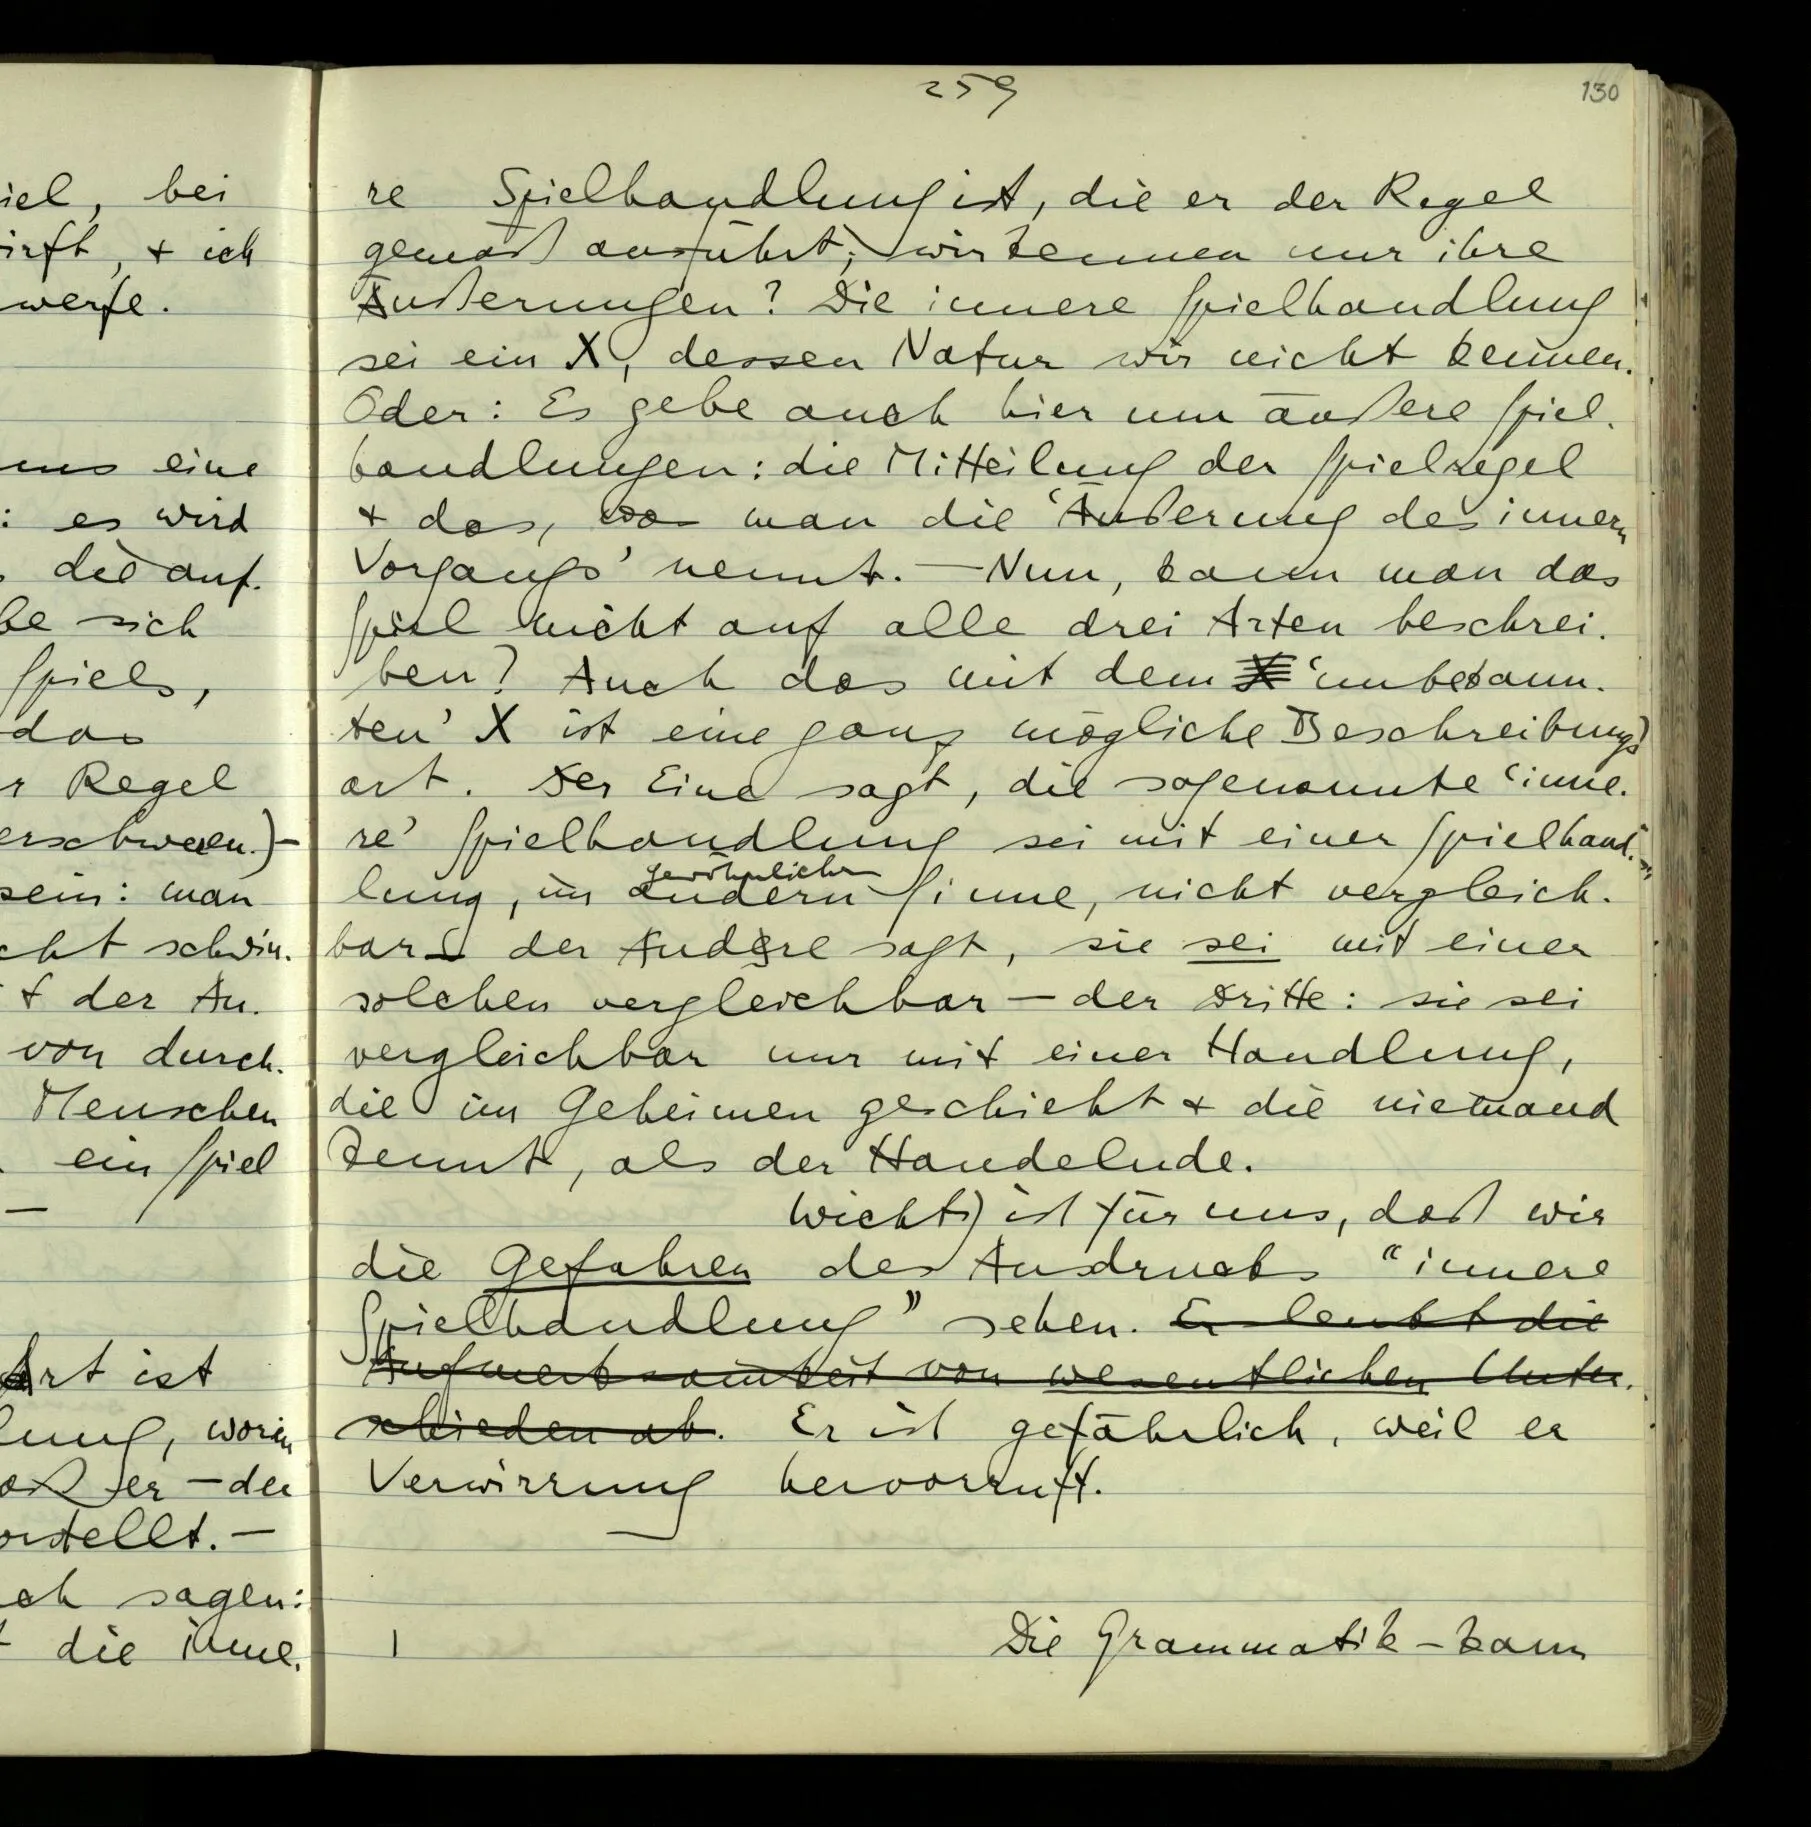 259
130
iel, bei
irft, + ich
werfe.
uns eine
: es wird
die auf-
be sich
Spiels,
das
r Regel
erschweren.)–
sein: man
cht schwin-
t der An-
von durch-
Menschen
ein Spiel
–
Art ist
lung, worin
aß er – der
orstellt. –
ch sagen:
t die inne-
re Spielhandlung ist, die er der Regel
gemäß ausführt; wir kennen nur ihre
Äußerungen? Die innere Spielhandlung
sei ein X, dessen Natur wir nicht kennen.
Oder: Es gebe auch hier nur äußere Spiel-
handlungen: die Mitteilung der Spielregel
+ das, was man die ‘Äußerung des innern
Vorgangs’ nennt. — Nun, kann man das
Spiel nicht auf alle drei Arten beschrei-
ben? Auch das mit dem X ‘unbekann-
ten’ X ist eine ganz mögliche Beschreibungs-
art. Der Eine sagt, die sogenannte ‘inne-
re’ Spielhandlung sei mit einer Spielhand-
gewöhnlichen
lung, im andern Sinne, nicht vergleich-
bar – der Andere sagt, sie sei mit einer
solchen vergleichbar – der Dritte: sie sei
vergleichbar nur mit einer Handlung,
die im Geheimen geschieht + die niemand
kennt, als der Handelnde.
Wichtig ist für uns, daß wir
die Gefahren des Ausdrucks “innere
Spielhandlung” sehen. Er lenkt die
Aufmerksamkeit von wesentlichen Unter-
schieden ab. Er ist gefährlich, weil er
Verwirrung hervorruft.
| Die Grammatik – kann